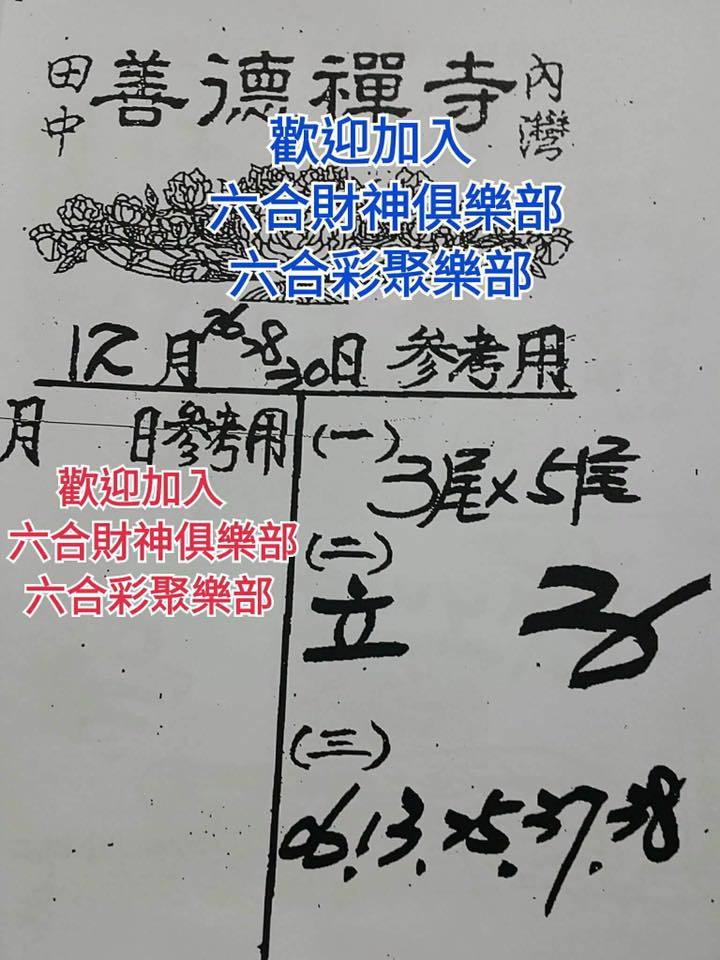 田中 善德禪寺 內灣
歡迎加入
六合財神俱樂部
六合彩聚樂部
12月26 28 30日參考用
月 日參考用
歡迎加入
六合財神俱樂部
六合彩聚樂部
(一)
3尾×5尾
(二)
立
(三)
06.13.25.37.38